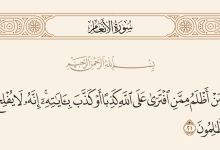 سورة الأنعام
بِسْمِ اللَّهِ الرَّحْمَٰنِ الرَّحِيمِ
مَنْ أَظْلَمُ مِمَّنِ افْتَرَىٰ عَلَى اللَّهِ كَذِبًا أَوْ كَذَّبَ بِآيَاتِهِ ۗ إِنَّهُ لَا يُفْلِحُ
الظَّالِمُونَ ٢١